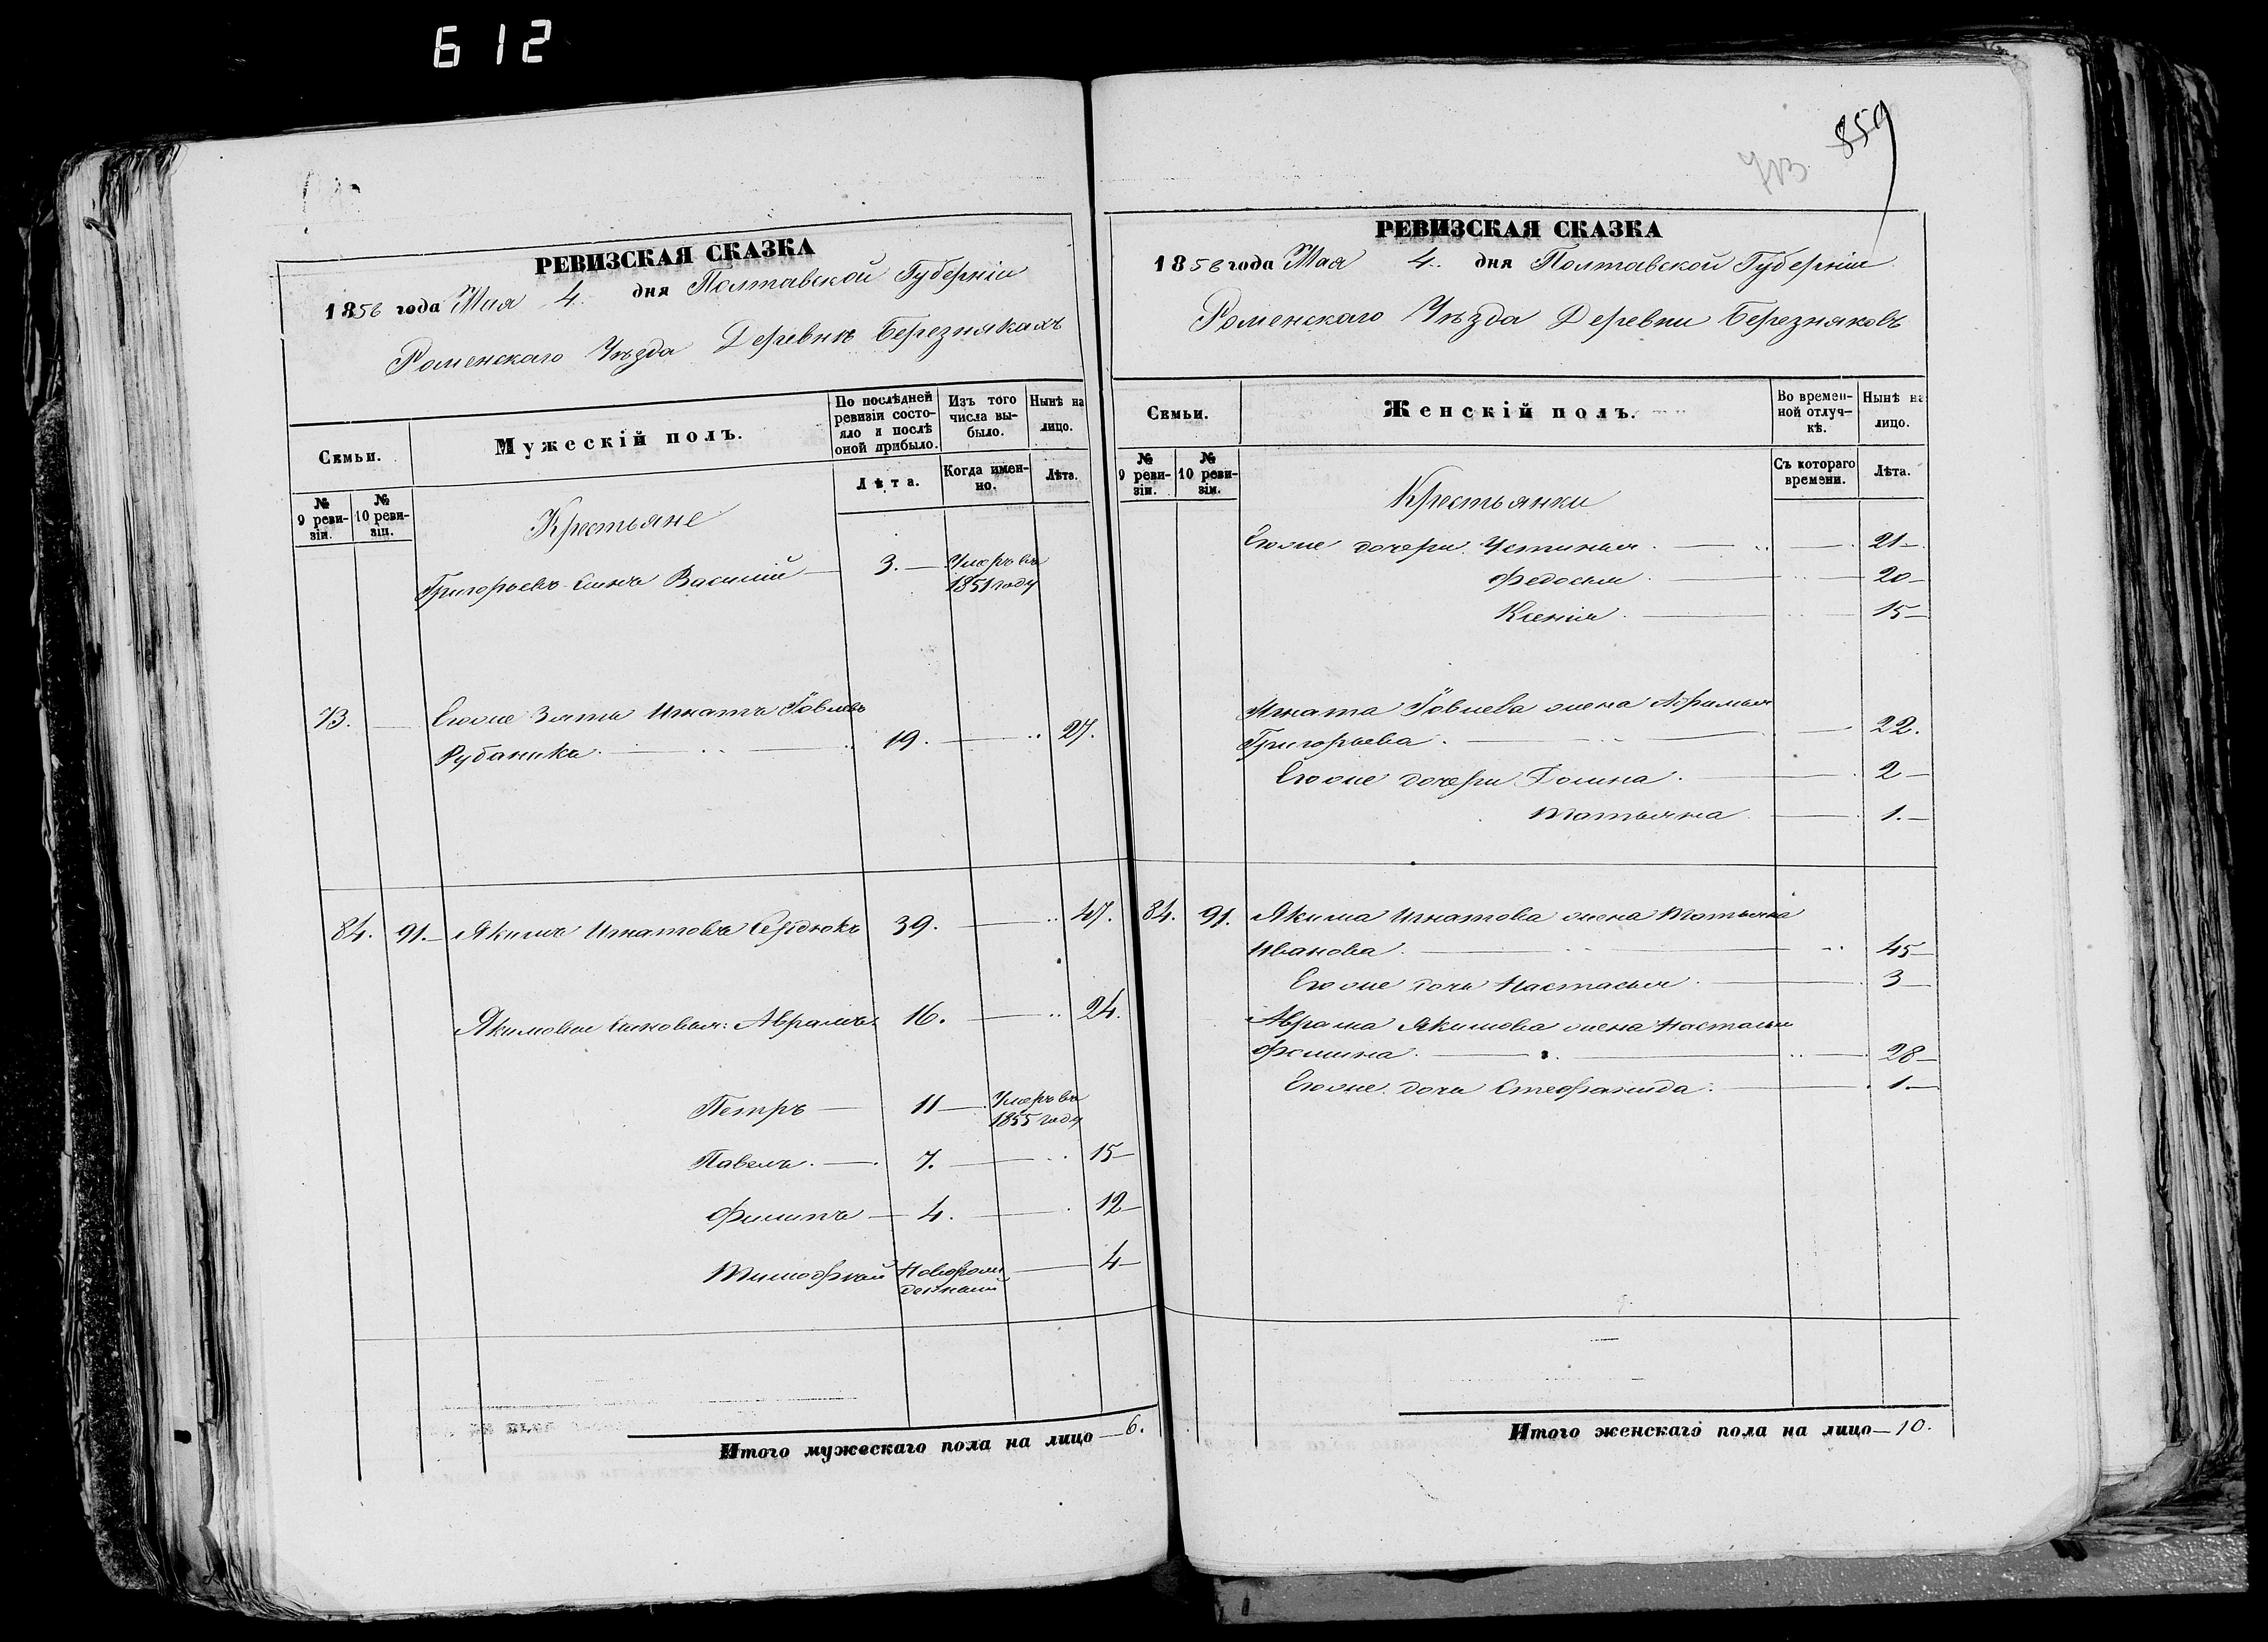 612
РЕВИЗСКАЯ СКАЗКА
1856 года Мая 4. дня Полтавской Губерніи
Роменскаго Уѣзда Деревнѣ Березнякахъ
Семьи.
Мужескій полъ.
По послѣдней ревизіи состояло и послѣ оной прибыло.
Изъ того числа выбыло.
Нынѣ на лицо.
№ 9 ревизіи.
№ 10 ревизіи.
Лѣта.
Когда именно.
Лѣта.
Крестьяне
Григорьевъ сынъ Василій — 3. — Умеръ въ
1851 году
73. — Егоже зять Игнатъ Іовлевъ
Рубаника. 19. — 27.
84. 91. — Якимъ Игнатовъ Сердюкъ 39. — 47.
Якимовы сыновья: Аврамъ. 16. — 24.
Петръ — 11 — Умеръ въ
1855 году
Павелъ. — 7. — 15 —
Филипъ — 4. — 12 —
Тимофѣй Новорож
денный — 4 —
Итого мужескаго пола на лицо — 6.
859
713
РЕВИЗСКАЯ СКАЗКА
1856 года Мая 4. дня Полтавской Губерніи
Роменскаго Уѣзда Деревни Березняковъ
Семьи.
Женскій полъ.
Во временной отлучкѣ.
Нынѣ на лицо.
№ 9 ревизіи.
№ 10 ревизіи.
Съ котораго времени.
Лѣта.
Крестьянки
Егоже дочери Устинья. — 21 —
Федосья. — 20 —
Ксенія. — 15 —
Игната Іовлева жена
Григорьева. — 22.
Егоже дочери Домна. — 2 —
Татьяна — 1. —
84. 91. Якима Игнатова жена Татьяна
Иванова. — 45 —
Егоже дочь Настасья. — 3 —
Аврама Якимова жена Настасья
Фомина. — 28 —
Егоже дочь Стефанида. — 1. —
Итого женскаго пола на лицо — 10.